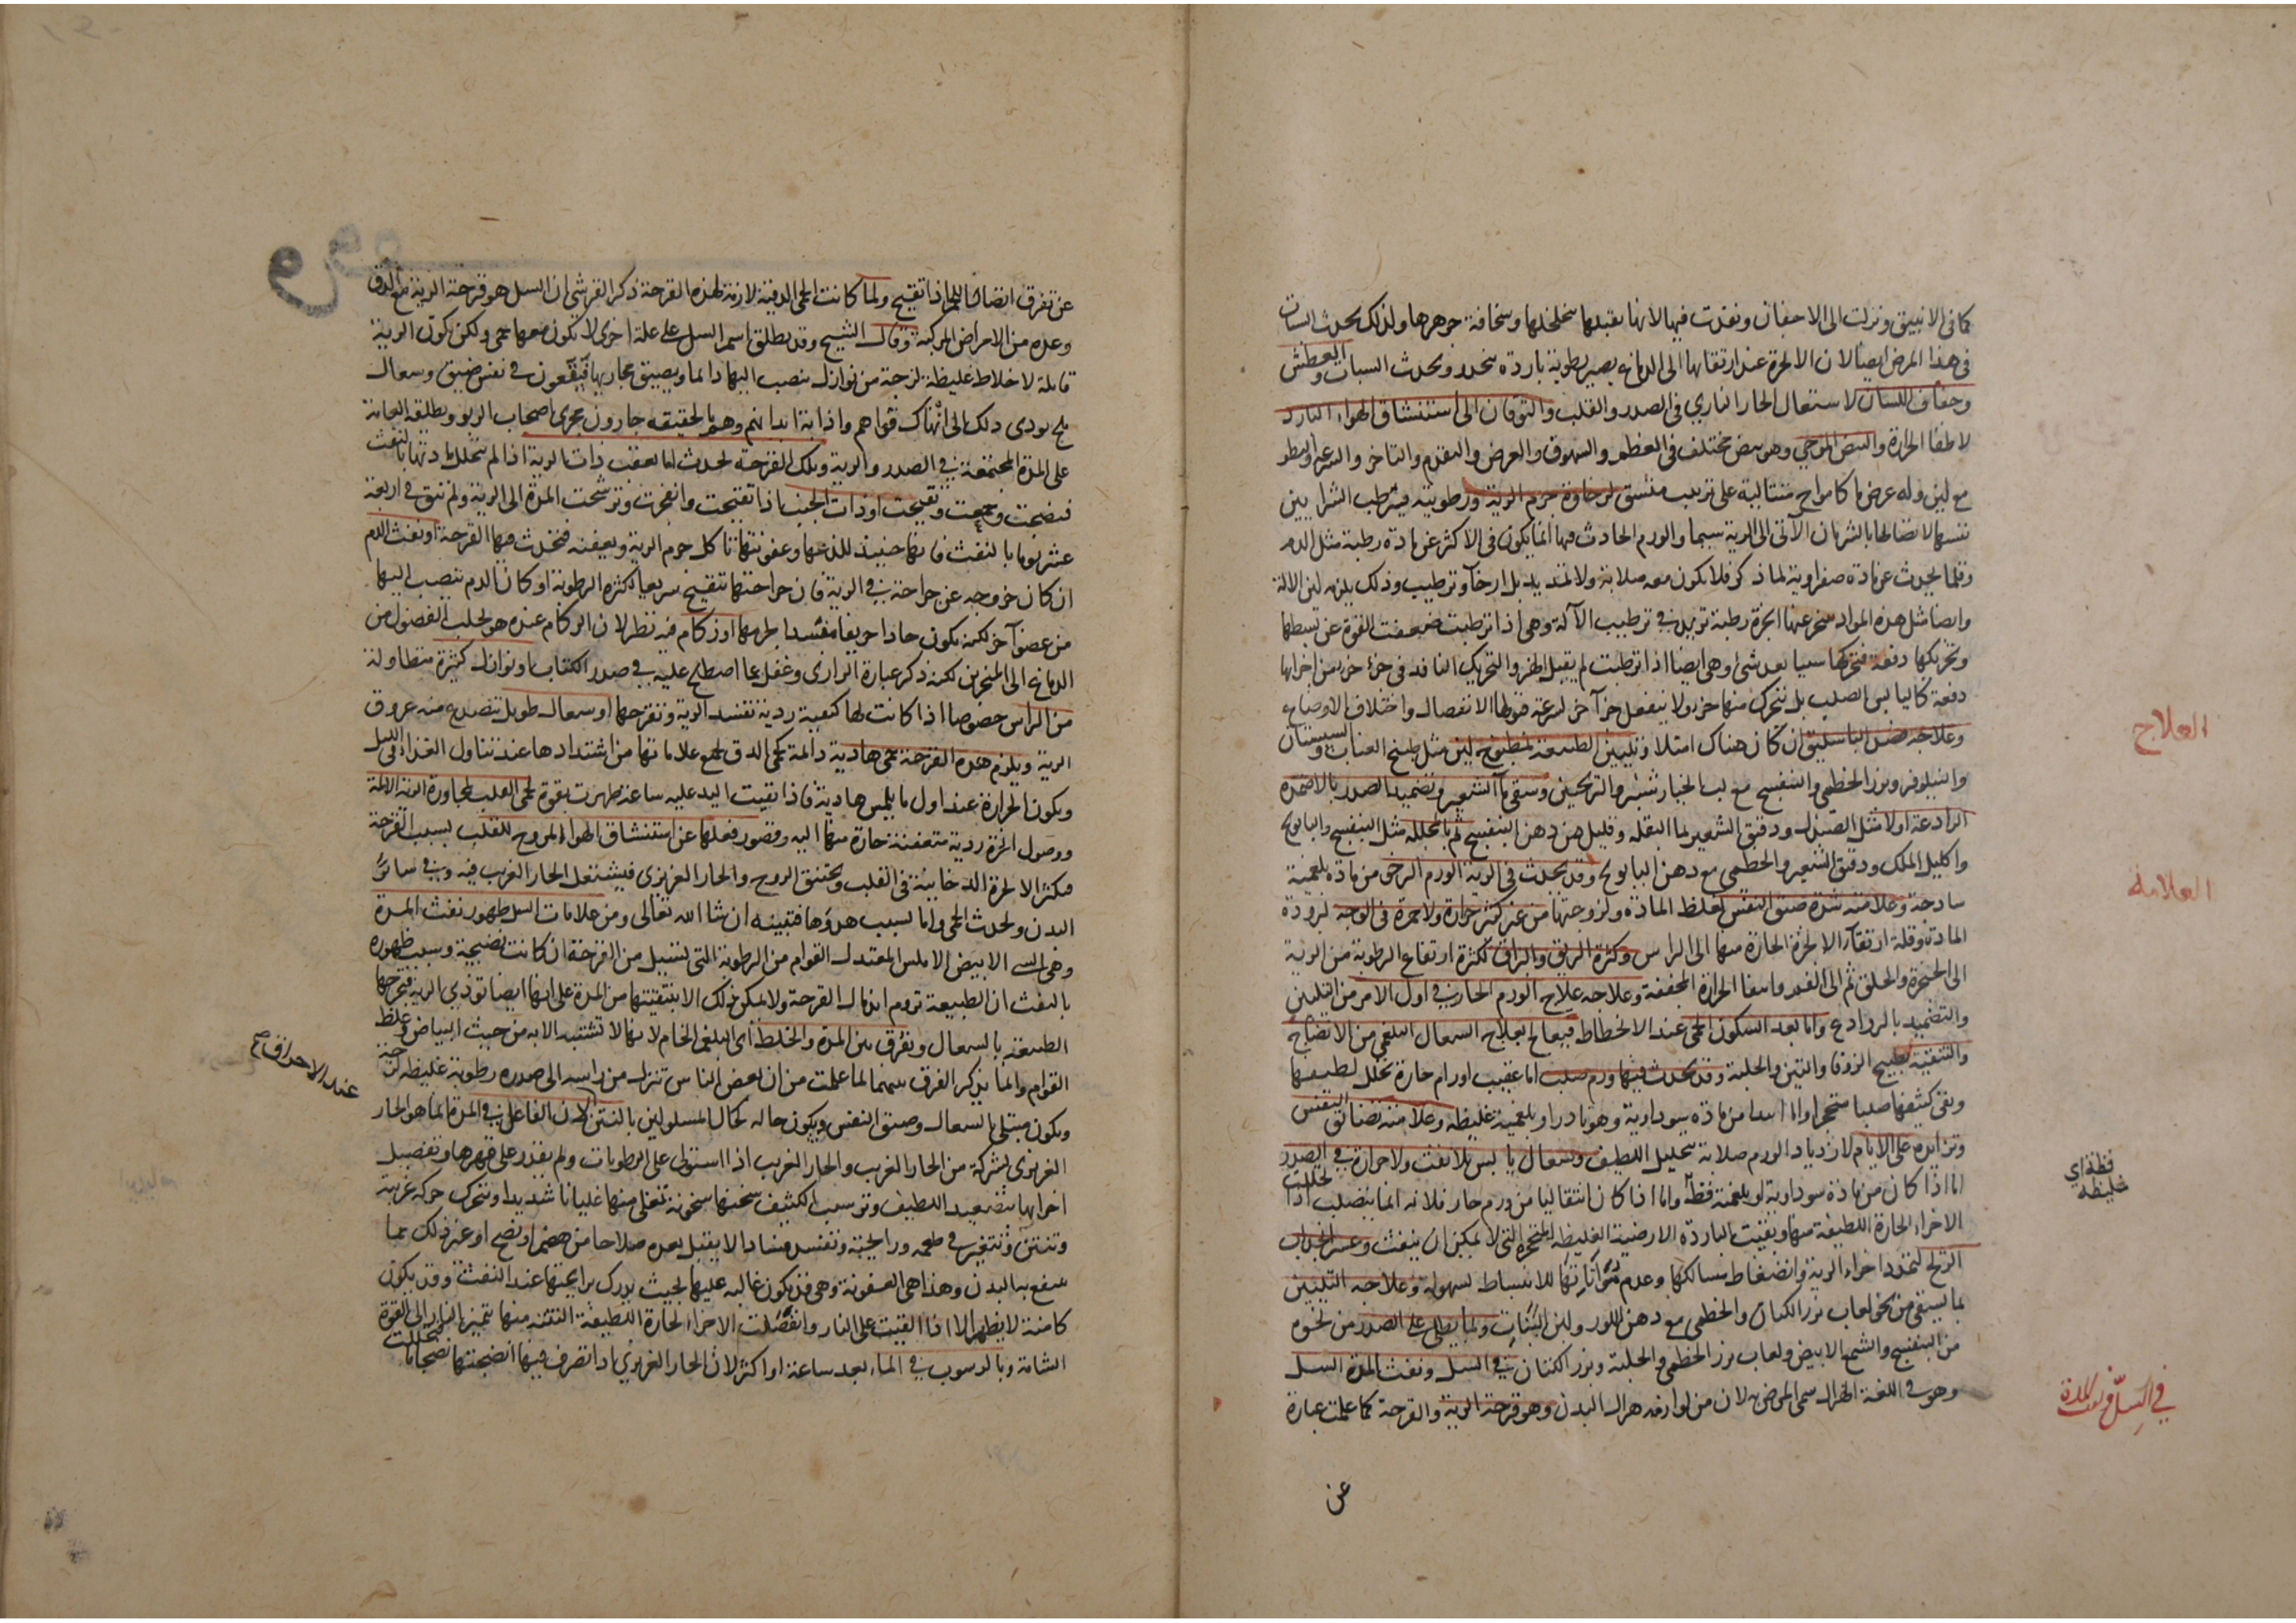 كما في الانبيق ونزلت الى الاجفان ونفذت فيها لانها تقبلها بتخلخلها وسخافة جوهرها ولذلك يحدث السبات
في هذا المرض ايضا لان الابخرة عند ارتقائها الى الدماغ يصير رطوبة باردة مخدر ويحدث السبات والعطش
وجفاف اللسان لاشتعال الحار الناري في الصدر والقلب والتوقان الى استنشاق الهواء البارد
لاطفا الحرارة والنبض الموجي وهو نبض مختلف في العظم والشهوق والعرض والتقدم والتاخر والسرعة والبطو
مع لين وله عرض ما كامواج متتالية على ترتيب متسق لرخاوة جرم الرية ورطوبته فيترطب الشرايين
نفسها لاتصالها بالشريان الآتي الى الرية سيما والورم الحادث فيها انما يكون في الاكثر عن مادة رطبة مثل الدم
وقلما يحدث عن مادة صفراوية لما ذكر فلا يكون معه صلابة ولا تمديد بل ارخآ وترطيب وذلك يلزمه لين الآلة
وايضا مثل هذه المواد يتبخر عنها ابخرة رطبة تزيد في ترطيب الآلة وهي اذا ترطبت ضعفت القوة عن بسطها
وتحريكها دفعة فتحركها شيا بعد شئ وهي ايضا اذا ترطبت لم يقبل الهز والتحريك النافذ في جزء جزء من اجزائها
دفعة كاليابس الصلب بل تتحرك منها جزء ولا ينفعل جزآ آخر لسرعة قبولها الانفصال واختلاف الاوضاع
وعلاجه فصد الباسليق ان كان هناك امتلا وتليين الطبيعة بمطبوخ لين مثل طبيخ العناب والسبستان
والنيلوفر وبزر الخطمي والبنفسج مع لب الخيار شنبر والترنجبين وسقي مآ الشعير وتضميد الصدر بالاضمدة
الرادعة اولا مثل الصندل ودقيق الشعير بما البقلة وقليل من دهن البنفسج ثم بالمحللة مثل البنفسج والبابونج
واكليل الملك ودقيق الشعير والخطمي مع دهن البابونج وقد يحدث في الرية الورم الرخو من مادة بلغمية
ساذجة وعلامته شدة ضيق النفس لغلظ المادة ولزوجتها من غير كثير حرارة ولا حمرة في الوجه لبرودة
المادة وقلة ارتقآ الابخرة الحارة منها الى الراس وكثرة الريق والبزاق لكثرة ارتفاع الرطوبة من الرية
الى الحنجرة والحلق ثم الى الفم وانتفا الحرارة المجففة وعلاجه علاج الورم الحار في اول الامر من التليين
والتضميد بالروادع واما بعد السكون الحمى عند الانحطاط فيعالج بعلاج السعال البلغمي من الانضاج
والتنقية بطبيخ الزوفا والتين والحلبة وقد يحدث فيها ورم صلب اما عقيب اورام حارة تحلل لطيفها
وبقي كثيفها صلبا متحجرا واما ابتدا من مادة سوداوية وهو نادر او بلغمية غليظة وعلامته تضايق النفس
وتزايده على الايام لازدياد الورم صلابة بتحليل اللطيف وسعال يابس بلا نفث ولا حرارة في الصدر
اما اذا كان من مادة سوداوية او بلغمية فظة واما اذا كان انتقاليا من ورم حار فلانه انما يتصلب اذا تحللت
الاجزاء الحارة اللطيفة منها وبقيت الباردة الارضية الغليظة المتحجرة التي لا يمكن ان ينفث وعسر انجذاب
الريح لتمدد اجزاء الرية وانضغاط مسالكها وعدم مؤاتاتها للانبساط بسهولة وعلاجه التليين
بما يسقى من نحو لعاب بزر الكتان والخطمي مع دهن اللوز ولبن اللبنات وبما يطلى على الصدر من نحو
من البنفسج والشمع الابيض ولعاب بزر الخطمي والحلبة وبزر الكتان في السل ونفث المدة السل
وهو في اللغة الهزال سمى المرض به لان من لوازمه هزال البدن وهو قرحة الرية والقرحة كما علمت عبارة
عن
العلاج
العلامة
فظة اي
غليظة
في السل ونفث المدة
عن تفرق اتصال اللحم اذا تقيح ولما كانت الحمى الدقية لازمة لهذه القرحة ذكر القرشي ان السل هو قرحة الرية مع الدق
وعده من الامراض المركبة وقال الشيخ وقد يطلق اسم السل على علة اخرى لا يكون معها حمى ولكن تكون الرية
قابلة لاخلاط غليظة لزجة من نوازل ينصب اليها دائما ويضيق مجاريها فيقعون في نفس ضيق وسعال
ملح يودي ذلك الى انهاك قواهم واذابة ابدانهم وهم بالحقيقة جارون مجرى اصحاب الربو ويطلقه العامة
على المدة المجتمعة في الصدر والرية وتلك القرحة تحدث اما بعقب ذات الرية اذا لم يتحلل مادتها بالنفث
فنضجت وجمعت وتقيحت او ذات الجنب اذا تقيحت وانفجرت وترشحت المدة الى الرية ولم تنق في اربعة
عشر يوما بالنفث فانها حينئذ للذعها وعفونتها تاكل جرم الرية ويعفنه فتحدث فيها القرحة او نفث الدم
ان كان خروجه عن جراحة في الرية فان جراحتها تتقيح سريعا لكثرة الرطوبة او كان الدم ينصب اليها
من عضو آخر لكنه يكون حادا حريفا مفسدا لجرمها او زكام فيه نظر لان الزكام عنده هو تحلب الفضول من
الدماغ الى المنخرين لكنه ذكر عبارة الرازي وغفل عما اصطلح عليه في صدر الكتاب او نوازل كثيرة متطاولة
من الراس خصوصا اذا كانت لها كيفية ردية تفسد الرية وتقرحها او سعال طويل يتصدع منه عروق
الرية ويلزم هذه القرحة حمى هادية دائمة كحمى الدق مع علاماتها من اشتدادها عند تناول الغذاء وفي الليل
ويكون الحرارة عند اول ما يلمس هادية فاذا بقيت اليد عليه ساعة ظهرت بقوة لحمى القلب لمجاورة الرية الالمة
ووصول ابخرة ردية متعفنة حارة منها اليه وقصور فعلها عن استنشاق الهواء المروح للقلب بسبب القرحة
فيكثر الابخرة الدخانية في القلب ويختنق الروح والحار الغريزي فيشتعل الحار الغريب فيه وفي سائر
البدن ويحدث الحمى واما بسبب هدوها فتبينه ان شا الله تعالى ومن علامات السل ظهور نفث المدة
وهي الشئ الابيض الاملس المعتدل القوام من الرطوبة التي تسيل من القرحة ان كانت نضيجة وسبب ظهوره
بالنفث ان الطبيعة تروم اندمال القرحة ولا يمكن ذلك الا بتنقيتها من المدة على انها ايضا توذي الرية فتحركها
الطبيعة بالسعال ويفرق بين المدة والخلط اى البلغم الخام لانها لا تشتبه الا به من حيث البياض وغلظ
القوام وانما يذكر الفرق بينهما لما علمت من ان بعض الناس تنزل من راسه الى صدره رطوبة غليظة لزجة
ويكون مبتلى بالسعال وضيق النفس ويكون حاله كحال المسلولين بالنتن لان الفاعل في المدة انما هو الحار
الغريزي بشركة من الحار الغريب والحار الغريب اذا استولى على الرطوبات ولم يقدر على قهرها وتفصيل
اجزائها بتصعيد اللطيف وترسيب الكثيف سخنها سخونة تغلي منها غليانا شديدا وتتحرك حركة غريبة
وتنتن وتتغير في طعمه ورايحته وتفسد فسادا لا يقبل بعده صلاحا من هضم او نضج او غير ذلك مما
ينفع به البدن وهذا هي العفونة وهي قد يكون غالبة عليها بحيث يدرك رايحتها عند النفث وقد يكون
كامنة لا يظهر الا اذا القيت على النار وانفصلت الاجزاء الحارة اللطيفة النتنة منها بتميز النار الى القوة
الشامة وبالرسوب في الماء بعد ساعة او اكثر لان الحار الغريزي اذا تصرف فيها انضجتها نضجا ما
عند الاحراق صح